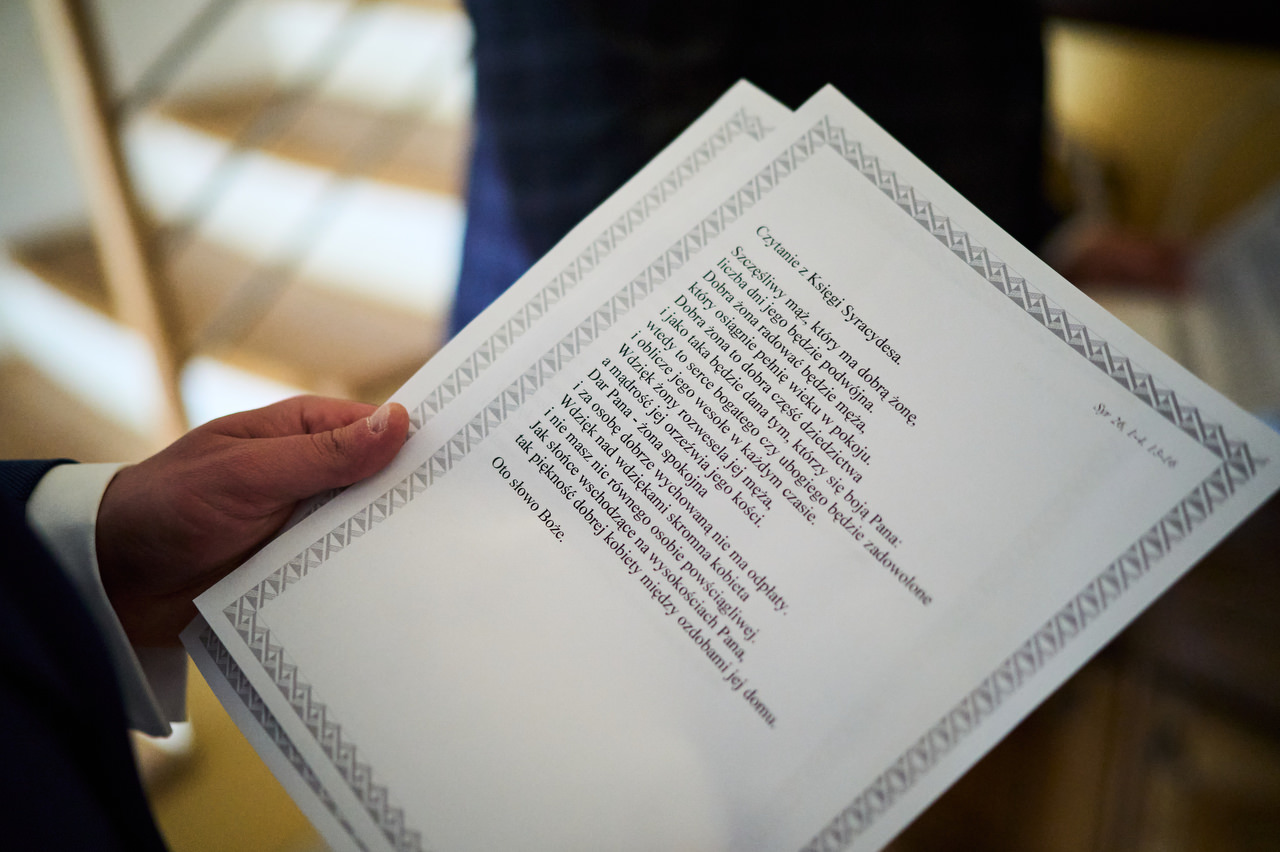 Syr 26, 1-4. 13-16
Czytanie z Księgi Syracydesa.
Szczęśliwy mąż, który ma dobrą żonę,
liczba dni jego będzie podwójna.
Dobra żona radować będzie męża,
który osiągnie pełnię wieku w pokoju.
Dobra żona to dobra część dziedzictwa
i jako taka będzie dana tym, którzy się boją Pana:
wtedy to serce bogatego czy ubogiego będzie zadowolone
i oblicze jego wesołe w każdym czasie.
Wdzięk żony rozwesela jej męża,
a mądrość jej orzeźwia jego kości.
Dar Pana - żona spokojna
i za osobę dobrze wychowaną nie ma odpłaty.
Wdzięk nad wdziękami skromna kobieta
i nie masz nic równego osobie powściągliwej.
Jak słońce wschodzące na wysokościach Pana,
tak piękność dobrej kobiety między ozdobami jej domu.
Oto słowo Boże.